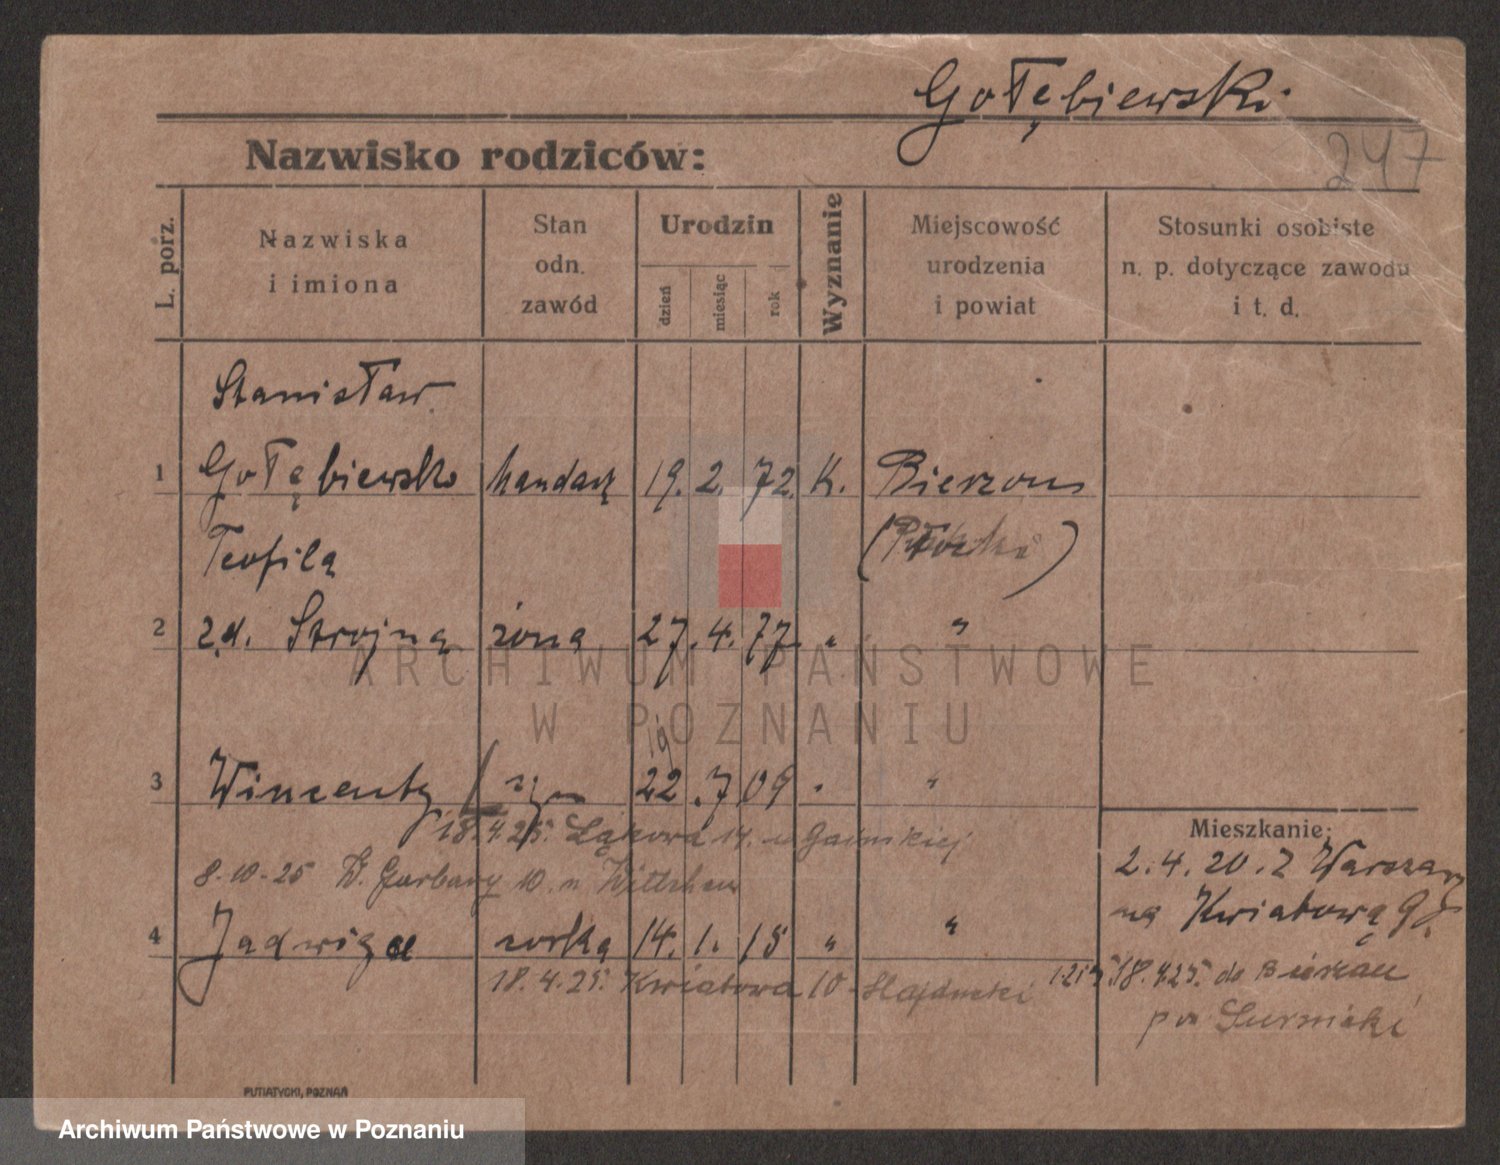 Gołębiewski
247
Nazwisko rodziców:
L. porz.
Nazwiska
i imiona
Stan
odn.
zawód
Urodzin
dzień
miesiąc
rok
Wyznanie
Miejscowość
urodzenia
i powiat
Stosunki osobiste
n. p. dotyczące zawodu
i t. d.
Stanisław
1 Gołębiewski handarz 19. 2. 72. K.
Teofila
2 z d. Strojna żona 27. 4. 77 "
ARCHIWUM PAŃSTWOWE
W POZNANIU
19
3 Wincenty syn 22 .7 09 " "
18.4.25. Łąkowa 14. u
Mieszkanie:
2.4.20. Z Warszawy
8.10.25 W. Garbary 10. u
na Kwiatową 9
4 Jadwiga córka 14. 1. 15 " "
18.4.25. Kwiatowa 10
18.4.25. do
PUTIATYCKI, POZNAŃ
Archiwum Państwowe w Poznaniu